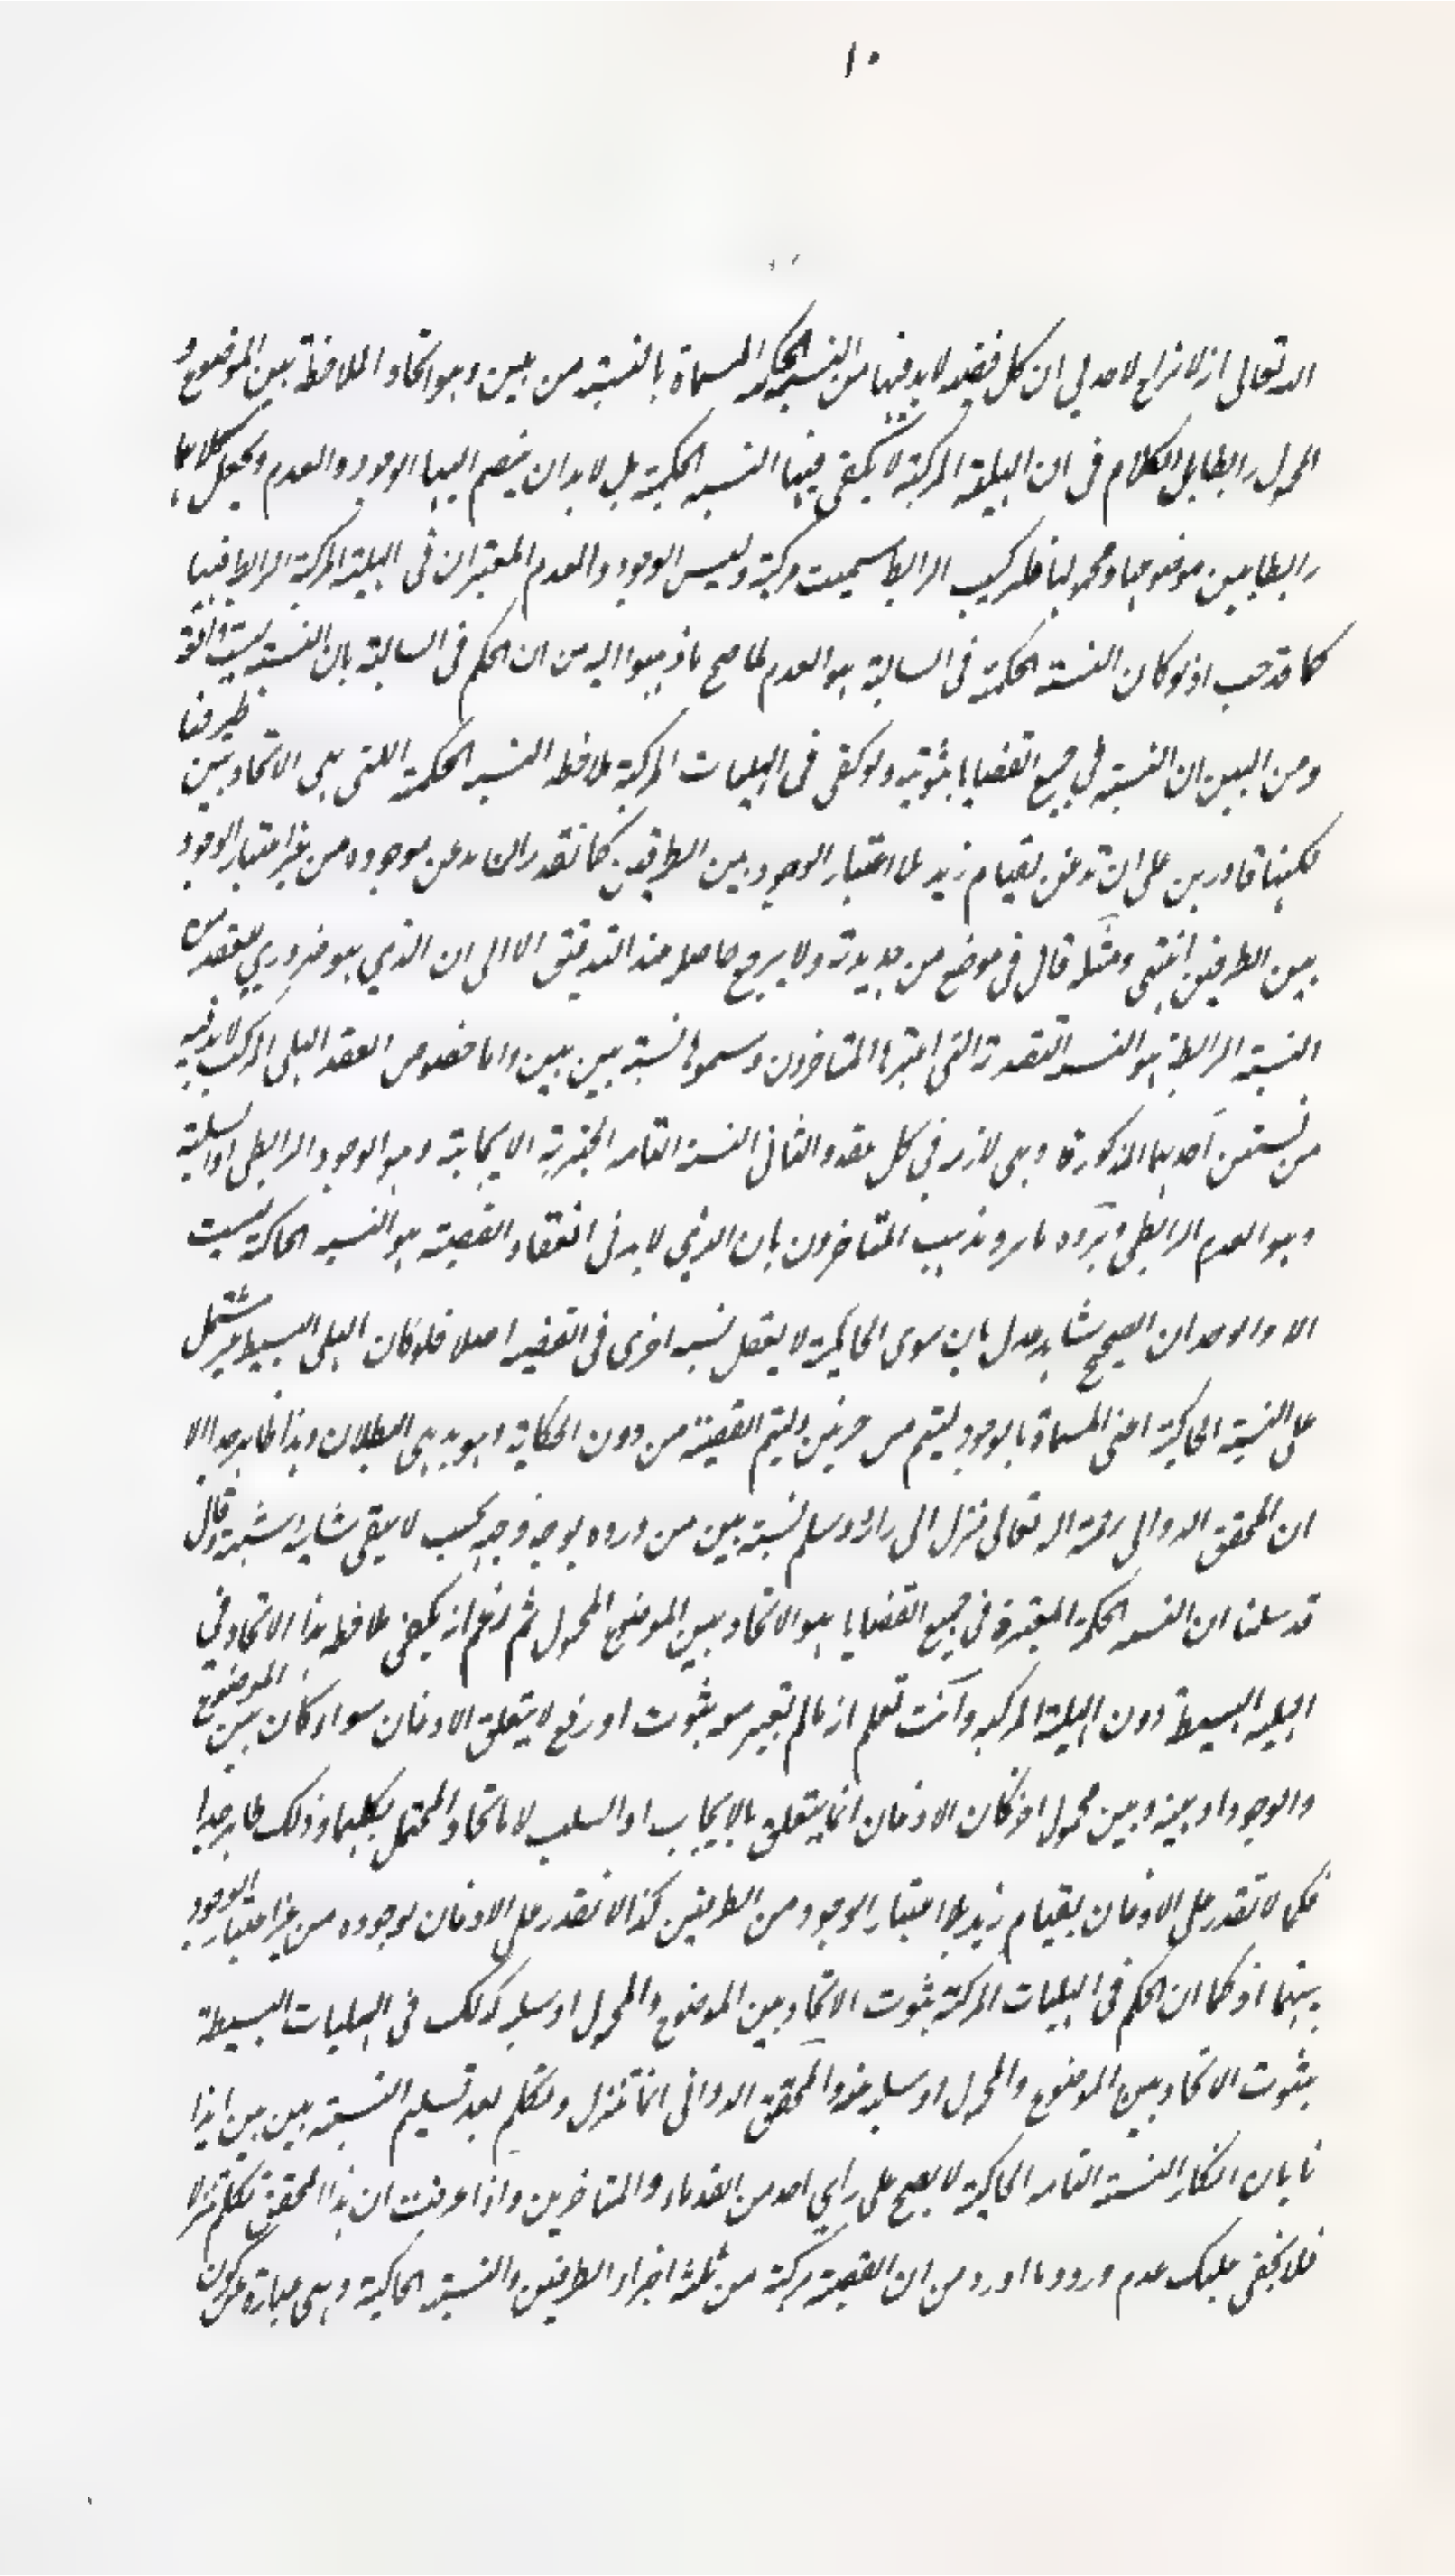 ١٠
الله تعالى انه لا نزاع لاحد فى ان كل قضية لابد فيها من النسبة الحكمية المسماة بالنسبة بين بين وهو اتحاد الملاحظة بين الموضوع و
المحمول رابطا بل الكلام فى ان الهلية المركبة لا يكفى فيها النسبة الحكمية بل لابد ان ينضم اليها الوجود والعدم ويجعل كلاهما
رابطا بين موضوعها ومحمولها فلتركب الرابط سميت مركبة وليس الوجود والعدم المعتبران فى الهلية المركبة الرابط فيها
كما قد حسب اذ لو كان النسبة الحكمية فى السالبة هو العدم لما صح ما ذهبوا اليه من ان الحكم فى السالبة بان النسبة ليست واقعة
ومن البين ان النسبة فى جميع القضايا ثبوتية ولو كفى فى الهليات المركبة ملاحظة النسبة الحكمية اللتى هى الاتحاد بين طرفيها
لكنا قادرين على ان نذعن بقيام زيد بلا اعتبار الوجود بين الطرفين كما نقدر ان نذعن بوجوده من غير اعتبار الوجود
بين الطرفين انتهى ومثله قال فى موضع من جديدته ولا يرجع حاصل هذا التدقيق الا الى ان الذي هو ضروري لعقد
النسبة الرابطة هو النسبة التقييدية التى اعتبرها المتاخرون وسموها نسبة بين بين واما خصوص العقد الهلى المركب لابد فيه
من نسبتين احدهما المذكورة وهى لازمة فى كل عقد والثانى النسبة التامة الخبرية الايجابية وهو الوجود الرابطى او السلبية
وهو العدم الرابطى ويرده ما مر ومذهب المتاخرون بان الذي لابد فى انعقاد القضية هو النسبة الحاكية ليست
الا والوجدان الصحيح شاهد عدل بان سوى الحاكية لا يعقل نسبة اخرى فى القضية اصلا فلو كان الهلى البسيط غير مشتمل
على النسبة الحاكية اعنى المسماة بالوجود ليتم من جزئين وليتم القضية من دون الحكاية وهو بديهى البطلان وهذا ظاهر جدا الا
ان المحقق الدوانى رحمة الله تعالى تنزل الى رايه وسلم نسبة بين بين ورده بوجه وجيه بحيث لا يبقى شايبة شبهة وقال
قد سلمنا ان النسبة الحكمية المعتبرة فى جميع القضايا هو الاتحاد بين الموضوع المحمول ثم زعم انه يكفى ملاحظة هذا الاتحاد فى
الهلية البسيطة دون الهلية المركبة وانت تعلم انه ما لم يعتبر معه ثبوت او رفع لا يتعلق الاذعان سواء كان بين الموضوع
والوجود او بينه وبين محمول اخر فان الاذعان انما يتعلق بالايجاب او السلب لا بالاتحاد المحتمل لكليهما وذلك ظاهر جدا
فكما لا تقدر على الاذعان بقيام زيد بلا اعتبار الوجود من الطرفين كذا لا نقدر على الاذعان بوجوده من غير اعتبار الوجود
بينهما اذ كما ان الحكم فى الهليات المركبة بثبوت الاتحاد بين الموضوع والمحمول او سلبه كذلك فى الهليات البسيطة
بثبوت الاتحاد بين الموضوع والمحمول او سلبه هذا والمحقق الدوانى انما تنزل وتكلم بعد تسليم النسبة بين بين ايذا
نا بان انكار النسبة التامة الحاكية لا يصح على راي احد من القدماء والمتاخرين واذا عرفت ان هذا المحقق تكلم تنزلا
فلا يخفى عليك عدم ورود ما اورد من ان القضية مركبة من ثلثة اجزاء الطرفين والنسبة الحاكية وهى عبارة عن كون